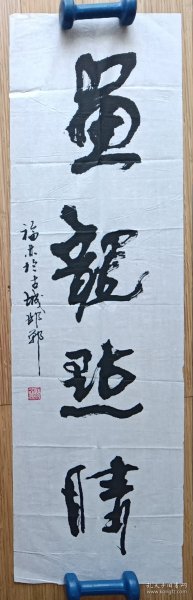 畫龍點睛
福東於古城邯鄲
孔夫子旧书网
www.kongfz.com